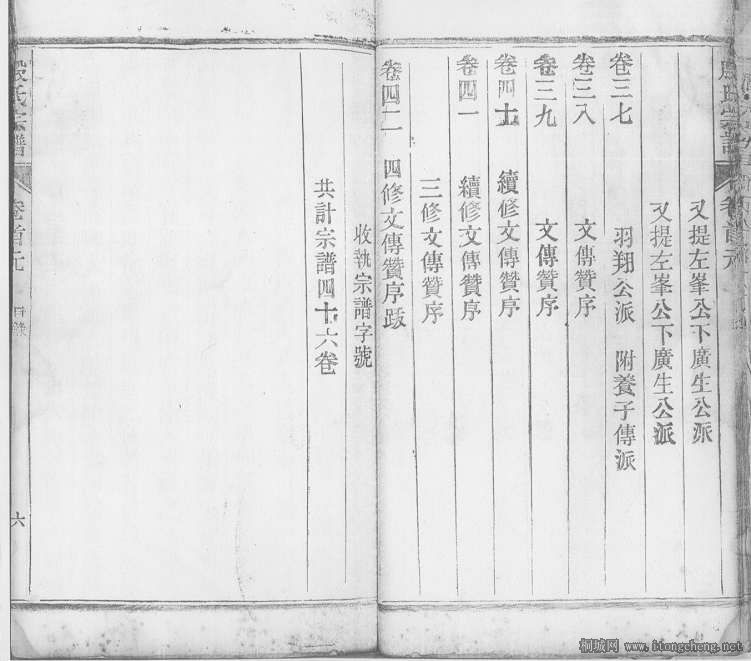 又提左峯公下廣生公派
又提左峯公下廣生公派
卷三七 羽翔公派 附養子傳派
卷三八 文傳贊序
卷三九 文傳贊序
卷四十 續修文傳贊序
卷四一 續修文傳贊序
三修文傳贊序
卷四二 四修文傳贊序跋
收執宗譜字號
共計宗譜四十六卷
殷氏宗譜 卷首元 目錄 六
桐城网 www.itongcheng.net